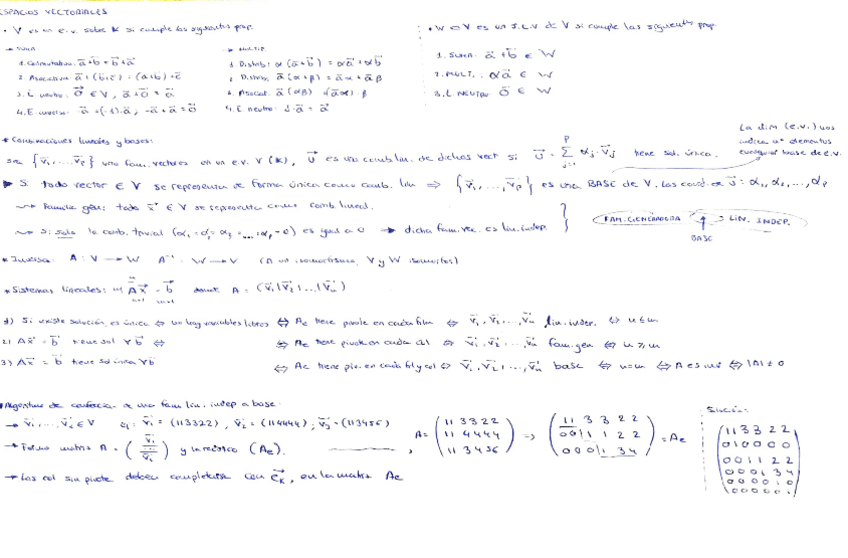 ESPACIOS VECTORIALES
• V es un e.v. sobre K si cumple las siguientes prop.
→ SUMA
1. Conmutativa: a⃗+b⃗ = b⃗+a⃗
2. Asociativa: a⃗+(b⃗+c⃗) = (a⃗+b⃗)+c⃗
3. E. neutro: 0⃗ ∈ V, a⃗+0⃗ = a⃗
→ MULTIP.
1. Distrib: α(a⃗+b⃗) = αa⃗+αb⃗
2. Distrib: a⃗(α+β) = a⃗α+a⃗β
4. E neutro: 1·a⃗ = a⃗
• W ⊂ V es un S.E.V. de V si cumple las siguientes prop.
1. SUMA: a⃗+b⃗ ∈ W
2. MULT.: αa⃗ ∈ W
3. E. NEUTRO: 0⃗ ∈ W
* Combinaciones lineales y bases:
La dim (e.v.) nos indica nº elementos
sea {v⃗₁,...,v⃗p} una fam. vectores en un e.v. V (K), v⃗ es una comb lin. de dichos vect si v⃗ = Σ αj·v⃗j tiene sol. única.
▶ Si todo vector ∈ V se representa de forma única como comb. lin ⇒ {v⃗₁,...,v⃗p} es una BASE de V. Las coord. de v⃗: α₁, α₂,..., αp
⇝ Familia gen: todo x⃗ ∈ V se representa como comb lineal.
⇝ Si solo la comb. trivial (α₁=α₂=α₃=...=αp=0) es igual a 0 → dicha fam. vec. es lin. indep.
FAM. GENERADORA
LIN. INDEP.
BASE
* Inversa: A: V → W A⁻¹: W → V (A un isomorfismo, V y W isomorfos)
* Sistemas lineales: Ax⃗ = b⃗ donde A = (v⃗₁|v⃗₂|...|v⃗n)
1) Si existe solución, es única ⇔ no hay variables libres ⇔ Ae tiene pivote en cada ⇔ v⃗₁, v⃗₂,..., v⃗n lin. indep. ⇔ n ≤ m
2) Ax⃗ = b⃗ tiene sol ∀b⃗ ⇔ Ae tiene pivote en cada ⇔ v⃗₁, v⃗₂,..., v⃗n fam. gen ⇔ n ≥ m
3) Ax⃗ = b⃗ tiene sol única ∀b⃗ ⇔ Ae tiene piv. en cada fil y col ⇔ v⃗₁, v⃗₂,..., v⃗n base ⇔ n=m ⇔ A es inv ⇔ |A| ≠ 0
* Algoritmo de de una fam lin. indep a base:
→ v⃗₁,..., ∈ V ej: v⃗₁ = (113322), v⃗₂ = (114444), v⃗₃ = (113456)
→ Formo matriz A = y la reduzco (Ae).
A = (1 1 3 3 2 2
1 1 4 4 4 4
1 1 3 4 5 6) → (1 1 3 3 2 2
0 0 1 1 2 2
0 0 0 1 3 4) = Ae
→ Las col sin pivote deben completarse con e⃗k, en la matriz Ae
(1 1 3 3 2 2
0 1 0 0 0 0
0 0 1 1 2 2
0 0 0 1 3 4
0 0 0 0 1 0
0 0 0 0 0 1)